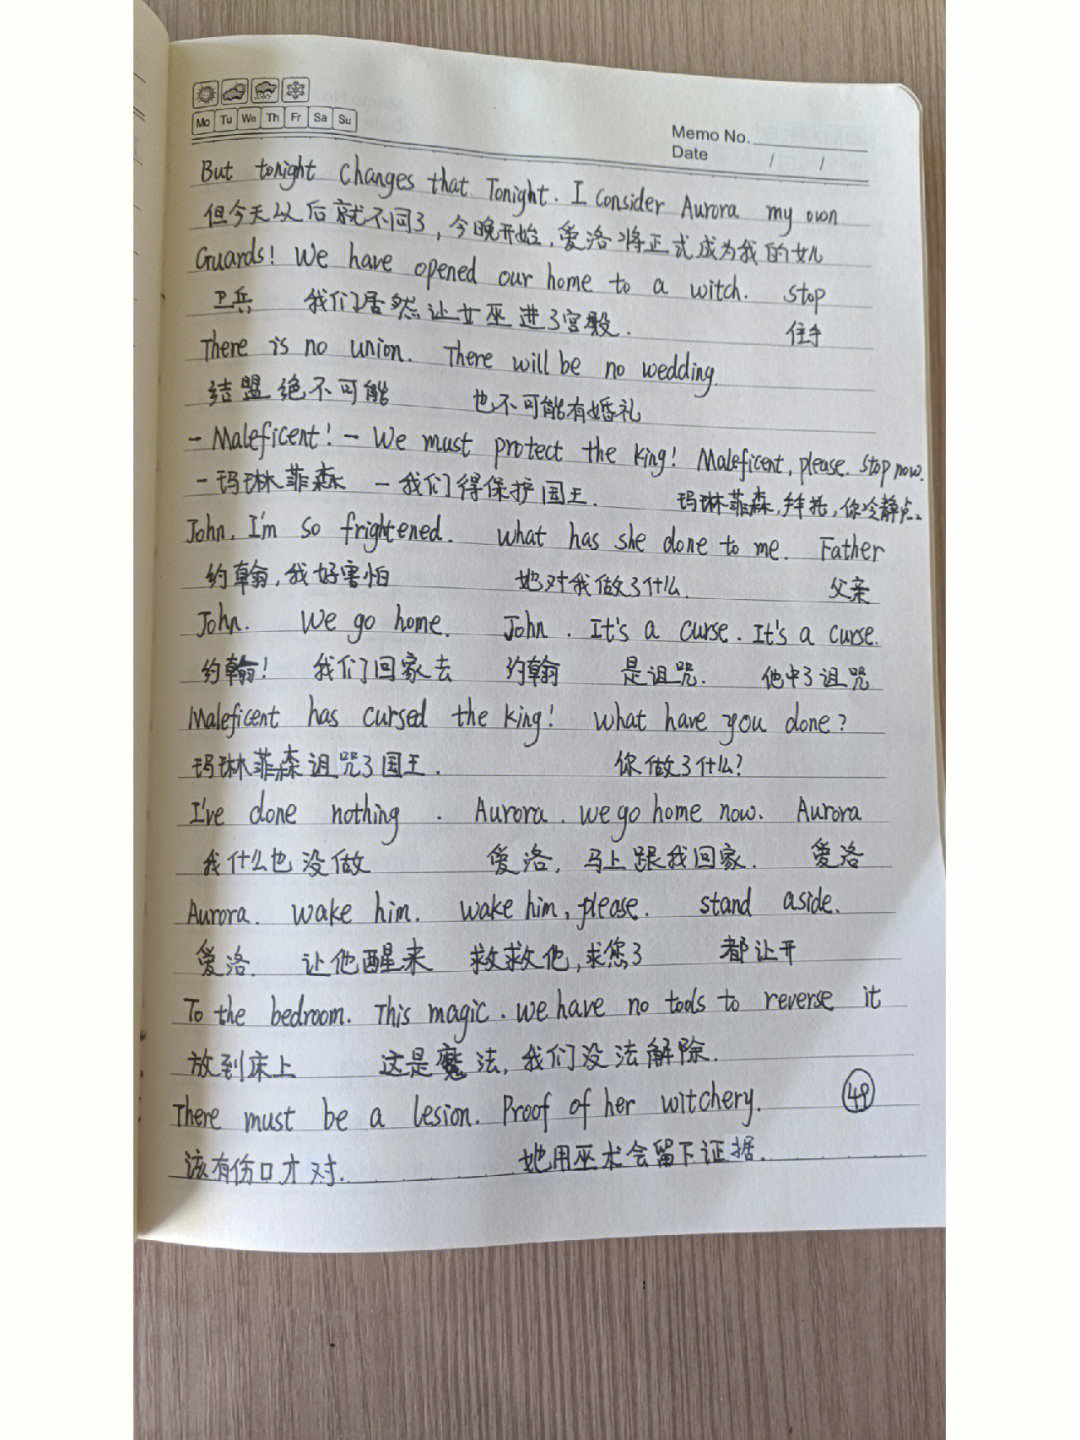 Mo Tu We Th Fr Sa Su
Memo No.
Date / /
But tonight changes that. Tonight. I consider Aurora my own
但今天以后就不同了，今晚开始，爱洛将正式成为我的女儿
Guards! We have opened our home to a witch. stop
卫兵 我们居然让女巫进了宫殿. 住手
There is no union. There will be no wedding.
结盟绝不可能 也不可能有婚礼
- Maleficent! - We must protect the king! Maleficent, please. stop now.
- 玛琳菲森 - 我们得保护国王. 玛琳菲森,拜托,你冷静点.
John. I'm so frightened. what has she done to me. Father
约翰,我好害怕 她对我做了什么. 父亲
John. We go home. John. It's a curse. It's a curse.
约翰! 我们回家去 约翰 是诅咒. 他中了诅咒
Maleficent has cursed the king! what have you done?
玛琳菲森诅咒了国王. 你做了什么?
I've done nothing. Aurora. we go home now. Aurora
我什么也没做 爱洛, 马上跟我回家. 爱洛
Aurora. wake him. wake him, please. stand aside.
爱洛. 让他醒来 救救他,求您了 都让开
To the bedroom. This magic. we have no tools to reverse it
放到床上 这是魔法, 我们没法解除.
There must be a lesion. Proof of her witchery. 49
该有伤口才对. 她用巫术会留下证据.